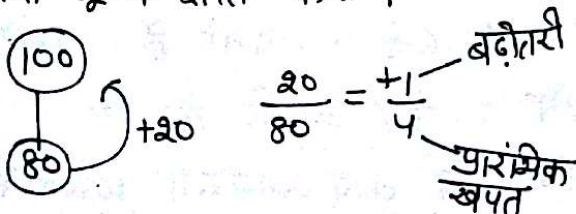 100
80
+20
20/80 = +1/4
बढ़ोतरी
प्रारंभिक
खपत